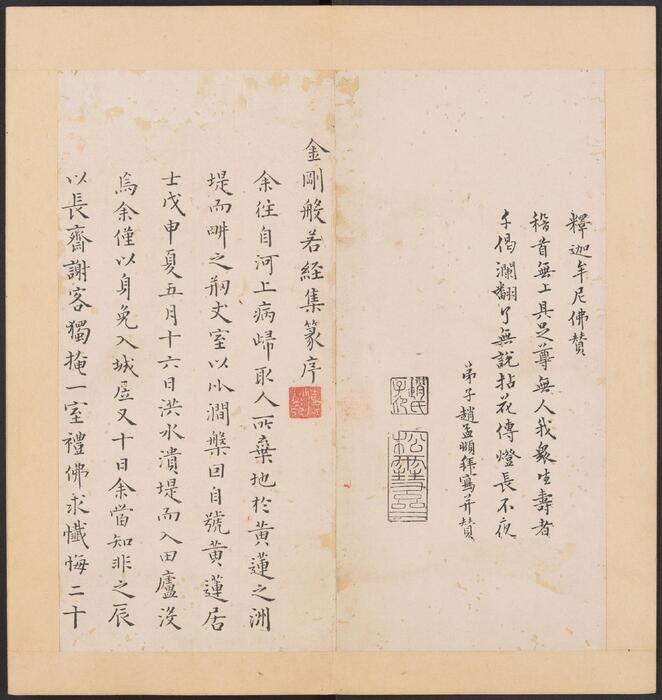 釋迦牟尼佛贊
稽首無上具足尊無人我衆生壽者
千偈瀾翻了無說拈花傳燈長不夜
弟子趙孟頫拜寫并贊
趙氏
子昂
松雪齋
金剛般若経集篆序
余往自河上病歸取人所棄地於黃蓮之洲
堤而畊之剏丈室以小澗槃回自號黃蓮居
士戊申夏五月十六日洪水潰堤而入田廬沒
焉余僅以身免入城居又十日余當知非之辰
以長齋謝客獨掩一室禮佛求懺悔二十